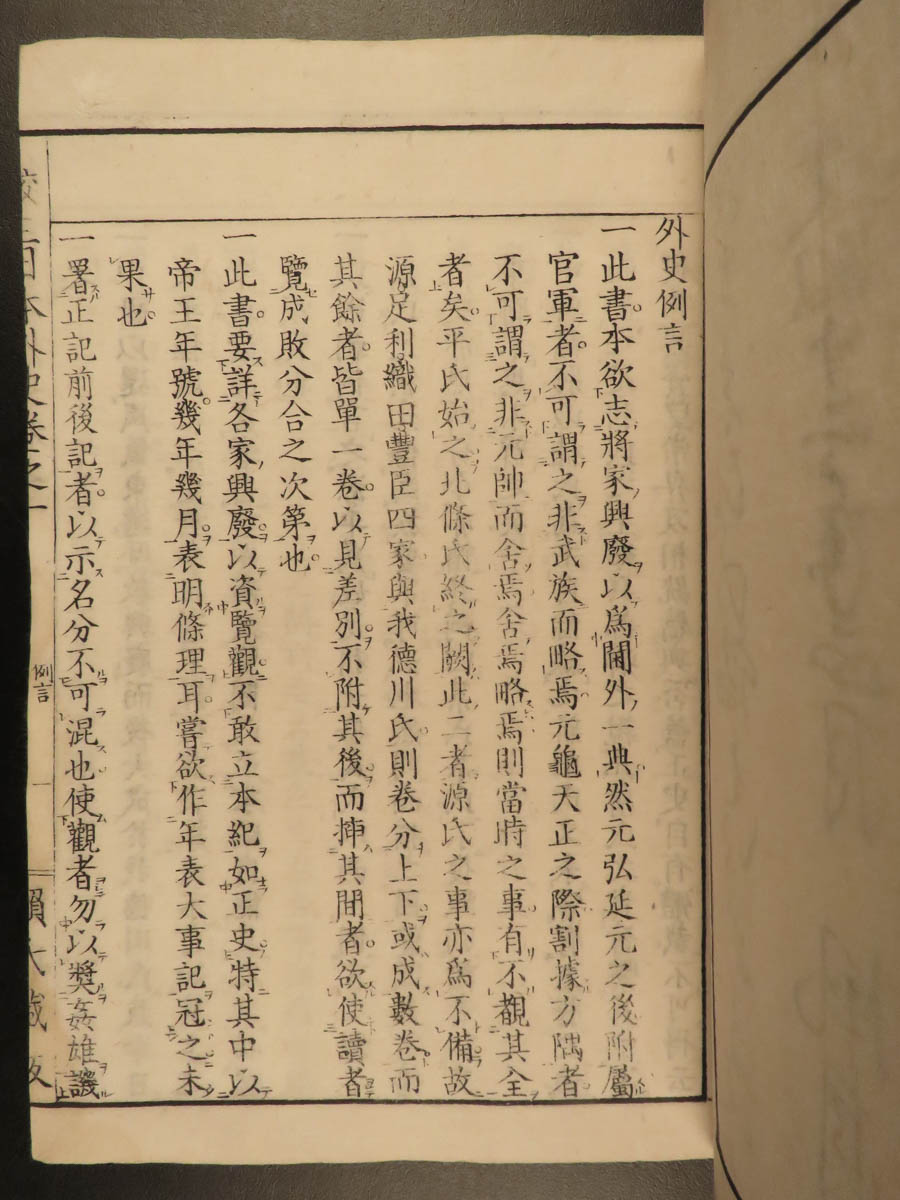 外史例言
一此書本欲志將家興廢以爲閫外一典然元弘延元之後附屬
官軍者不可謂之非武族而略焉元龜天正之際割據方隅者
不可謂之非元帥而舍焉舍焉略焉則當時之事有不覩其全
者矣平氏始之北條氏終之闕此二者源氏之事亦爲不備故
源足利織田豐臣四家與我德川氏則卷分上下或成數卷而
其餘者皆單一卷以見差別不附其後而揷其間者欲使讀者
覽成敗分合之次第也
一此書要詳各家興廢以資覽觀不敢立本紀如正史特其中以
帝王年號幾年幾月表明條理耳嘗欲作年表大事記冠之未
果也
一署正記前後記者以示名分不可混也使觀者勿以奬姦雄譏
日本外史卷之一
例言
一
賴氏藏版